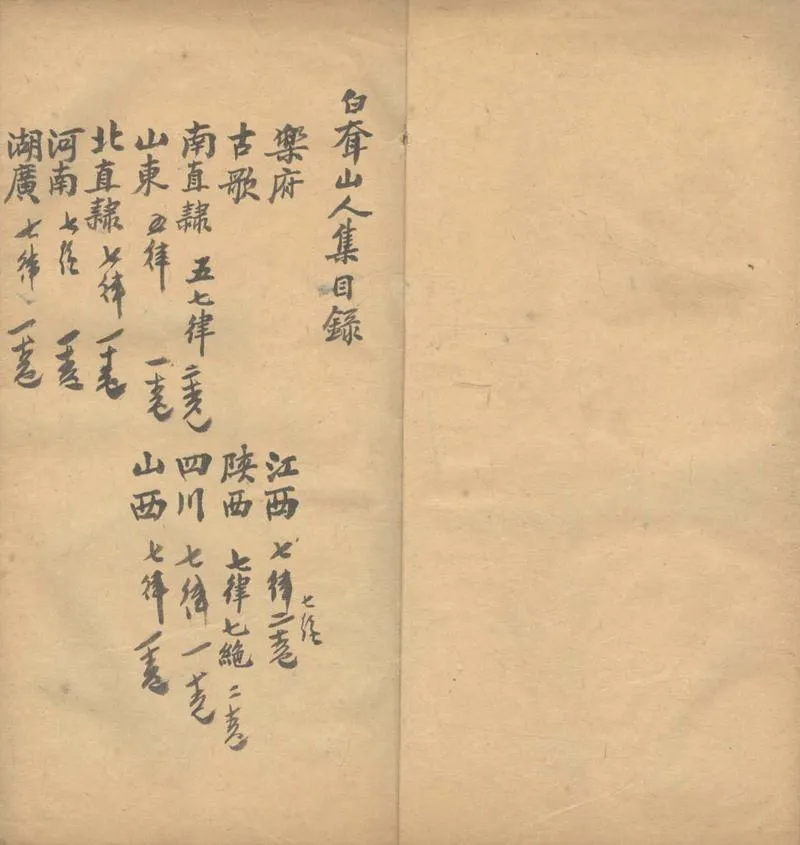 白耷山人集目錄
樂府
古歌
南直隸 五七律 二卷
山東 五律 一卷
北直隸 七律 一卷
河南 七絶 一卷
湖廣 七律 一卷
江西 七律 七絶 二卷
陝西 七律七絶 二卷
四川 七律 一卷
山西 七律 一卷